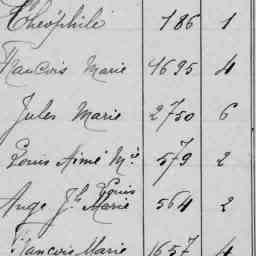 Théophile 186 1
François Marie 1695 4
Jules Marie 2750 6
Louis Aimé Mie 579 2
Louis
Ange Jh Marie 564 2
François Marie 1657 4